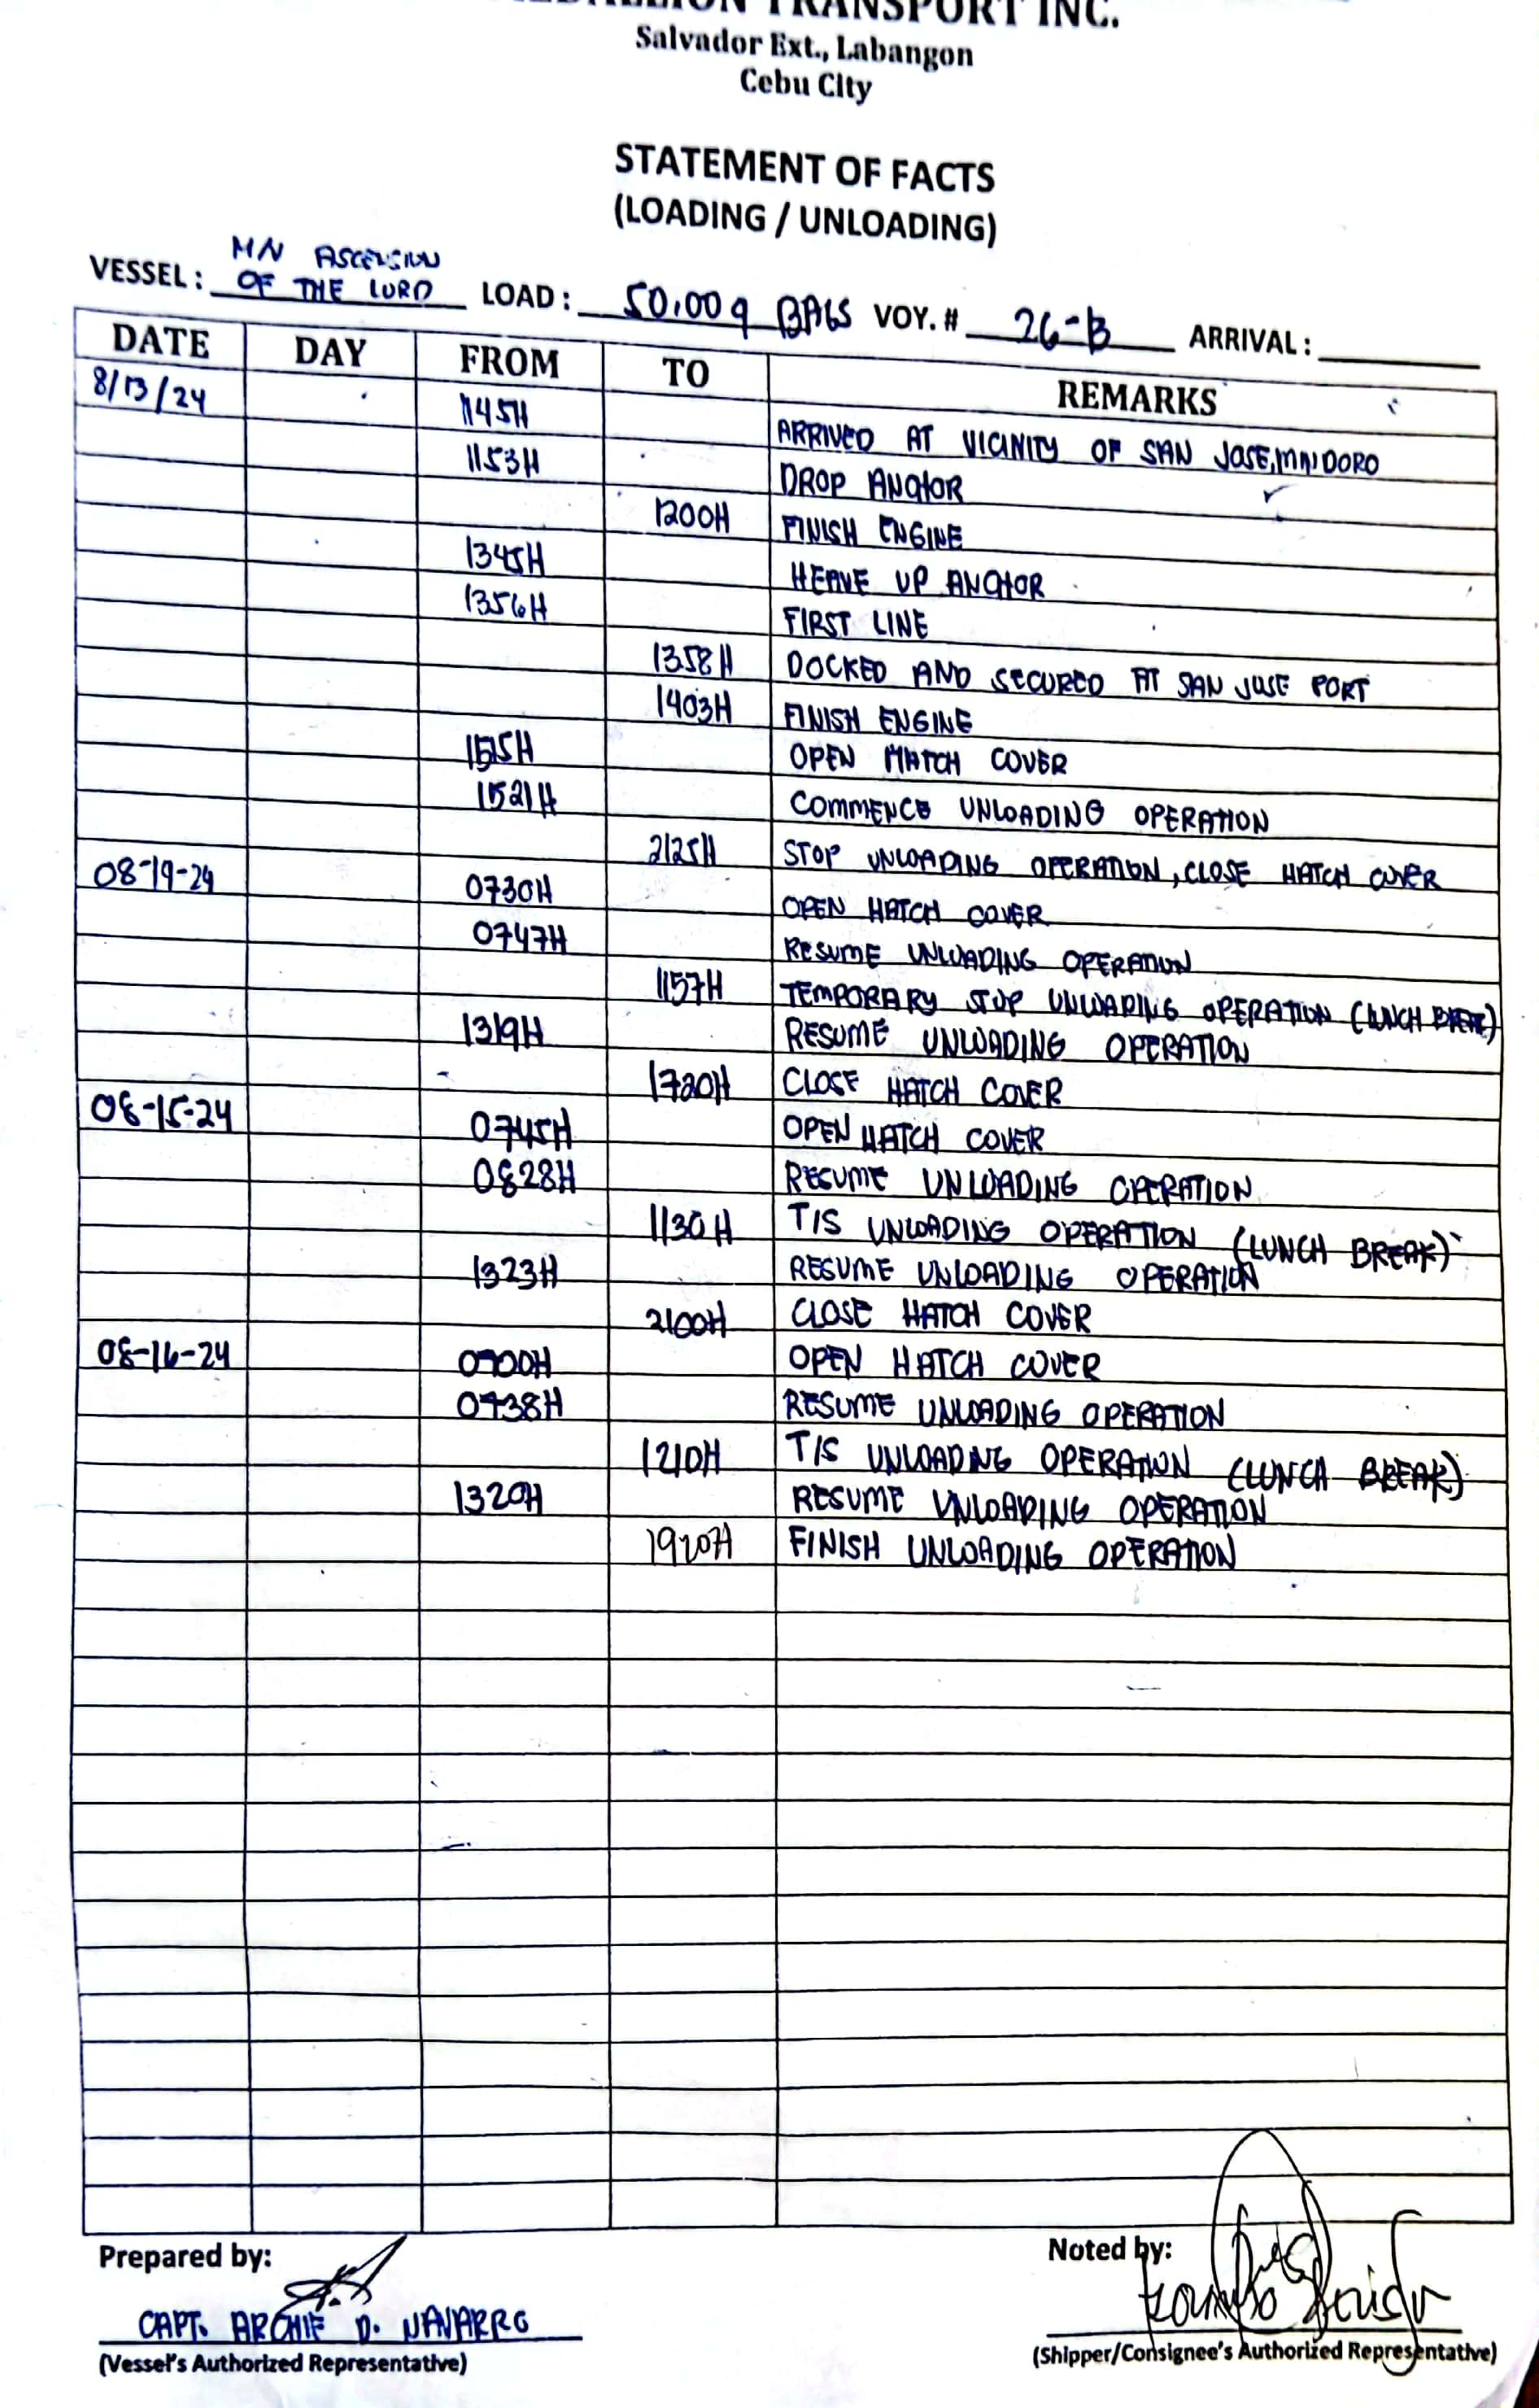 TRANSPORT INC.
Salvador Ext., Labangon
Cebu City
STATEMENT OF FACTS
(LOADING / UNLOADING)
VESSEL : M/V ASCENSION OF THE LORD LOAD : 50,009 BAGS VOY. # 26-B ARRIVAL :
DATE DAY FROM TO REMARKS
8/13/24 1145H ARRIVED AT VICINITY OF SAN JOSE, MINDORO
1153H DROP ANCHOR
1200H FINISH ENGINE
1345H HEAVE UP ANCHOR
1356H FIRST LINE
1358H DOCKED AND SECURED AT SAN JOSE PORT
1403H FINISH ENGINE
1515H OPEN HATCH COVER
1521H COMMENCE UNLOADING OPERATION
2125H STOP UNLOADING OPERATION, CLOSE HATCH COVER
08-14-24 0730H OPEN HATCH COVER
0747H RESUME UNLOADING OPERATION
1157H TEMPORARY STOP UNLOADING OPERATION (LUNCH BREAK)
1319H RESUME UNLOADING OPERATION
1720H CLOSE HATCH COVER
08-15-24 0745H OPEN HATCH COVER
0828H RESUME UNLOADING OPERATION
1130H T/S UNLOADING OPERATION (LUNCH BREAK)
1323H RESUME UNLOADING OPERATION
2100H CLOSE HATCH COVER
08-16-24 0700H OPEN HATCH COVER
0738H RESUME UNLOADING OPERATION
1210H T/S UNLOADING OPERATION (LUNCH BREAK)
1320H RESUME UNLOADING OPERATION
1920H FINISH UNLOADING OPERATION
Prepared by: Noted by:
CAPT. ARCHIE D. NAVARRO
(Vessel's Authorized Representative) (Shipper/Consignee's Authorized Representative)